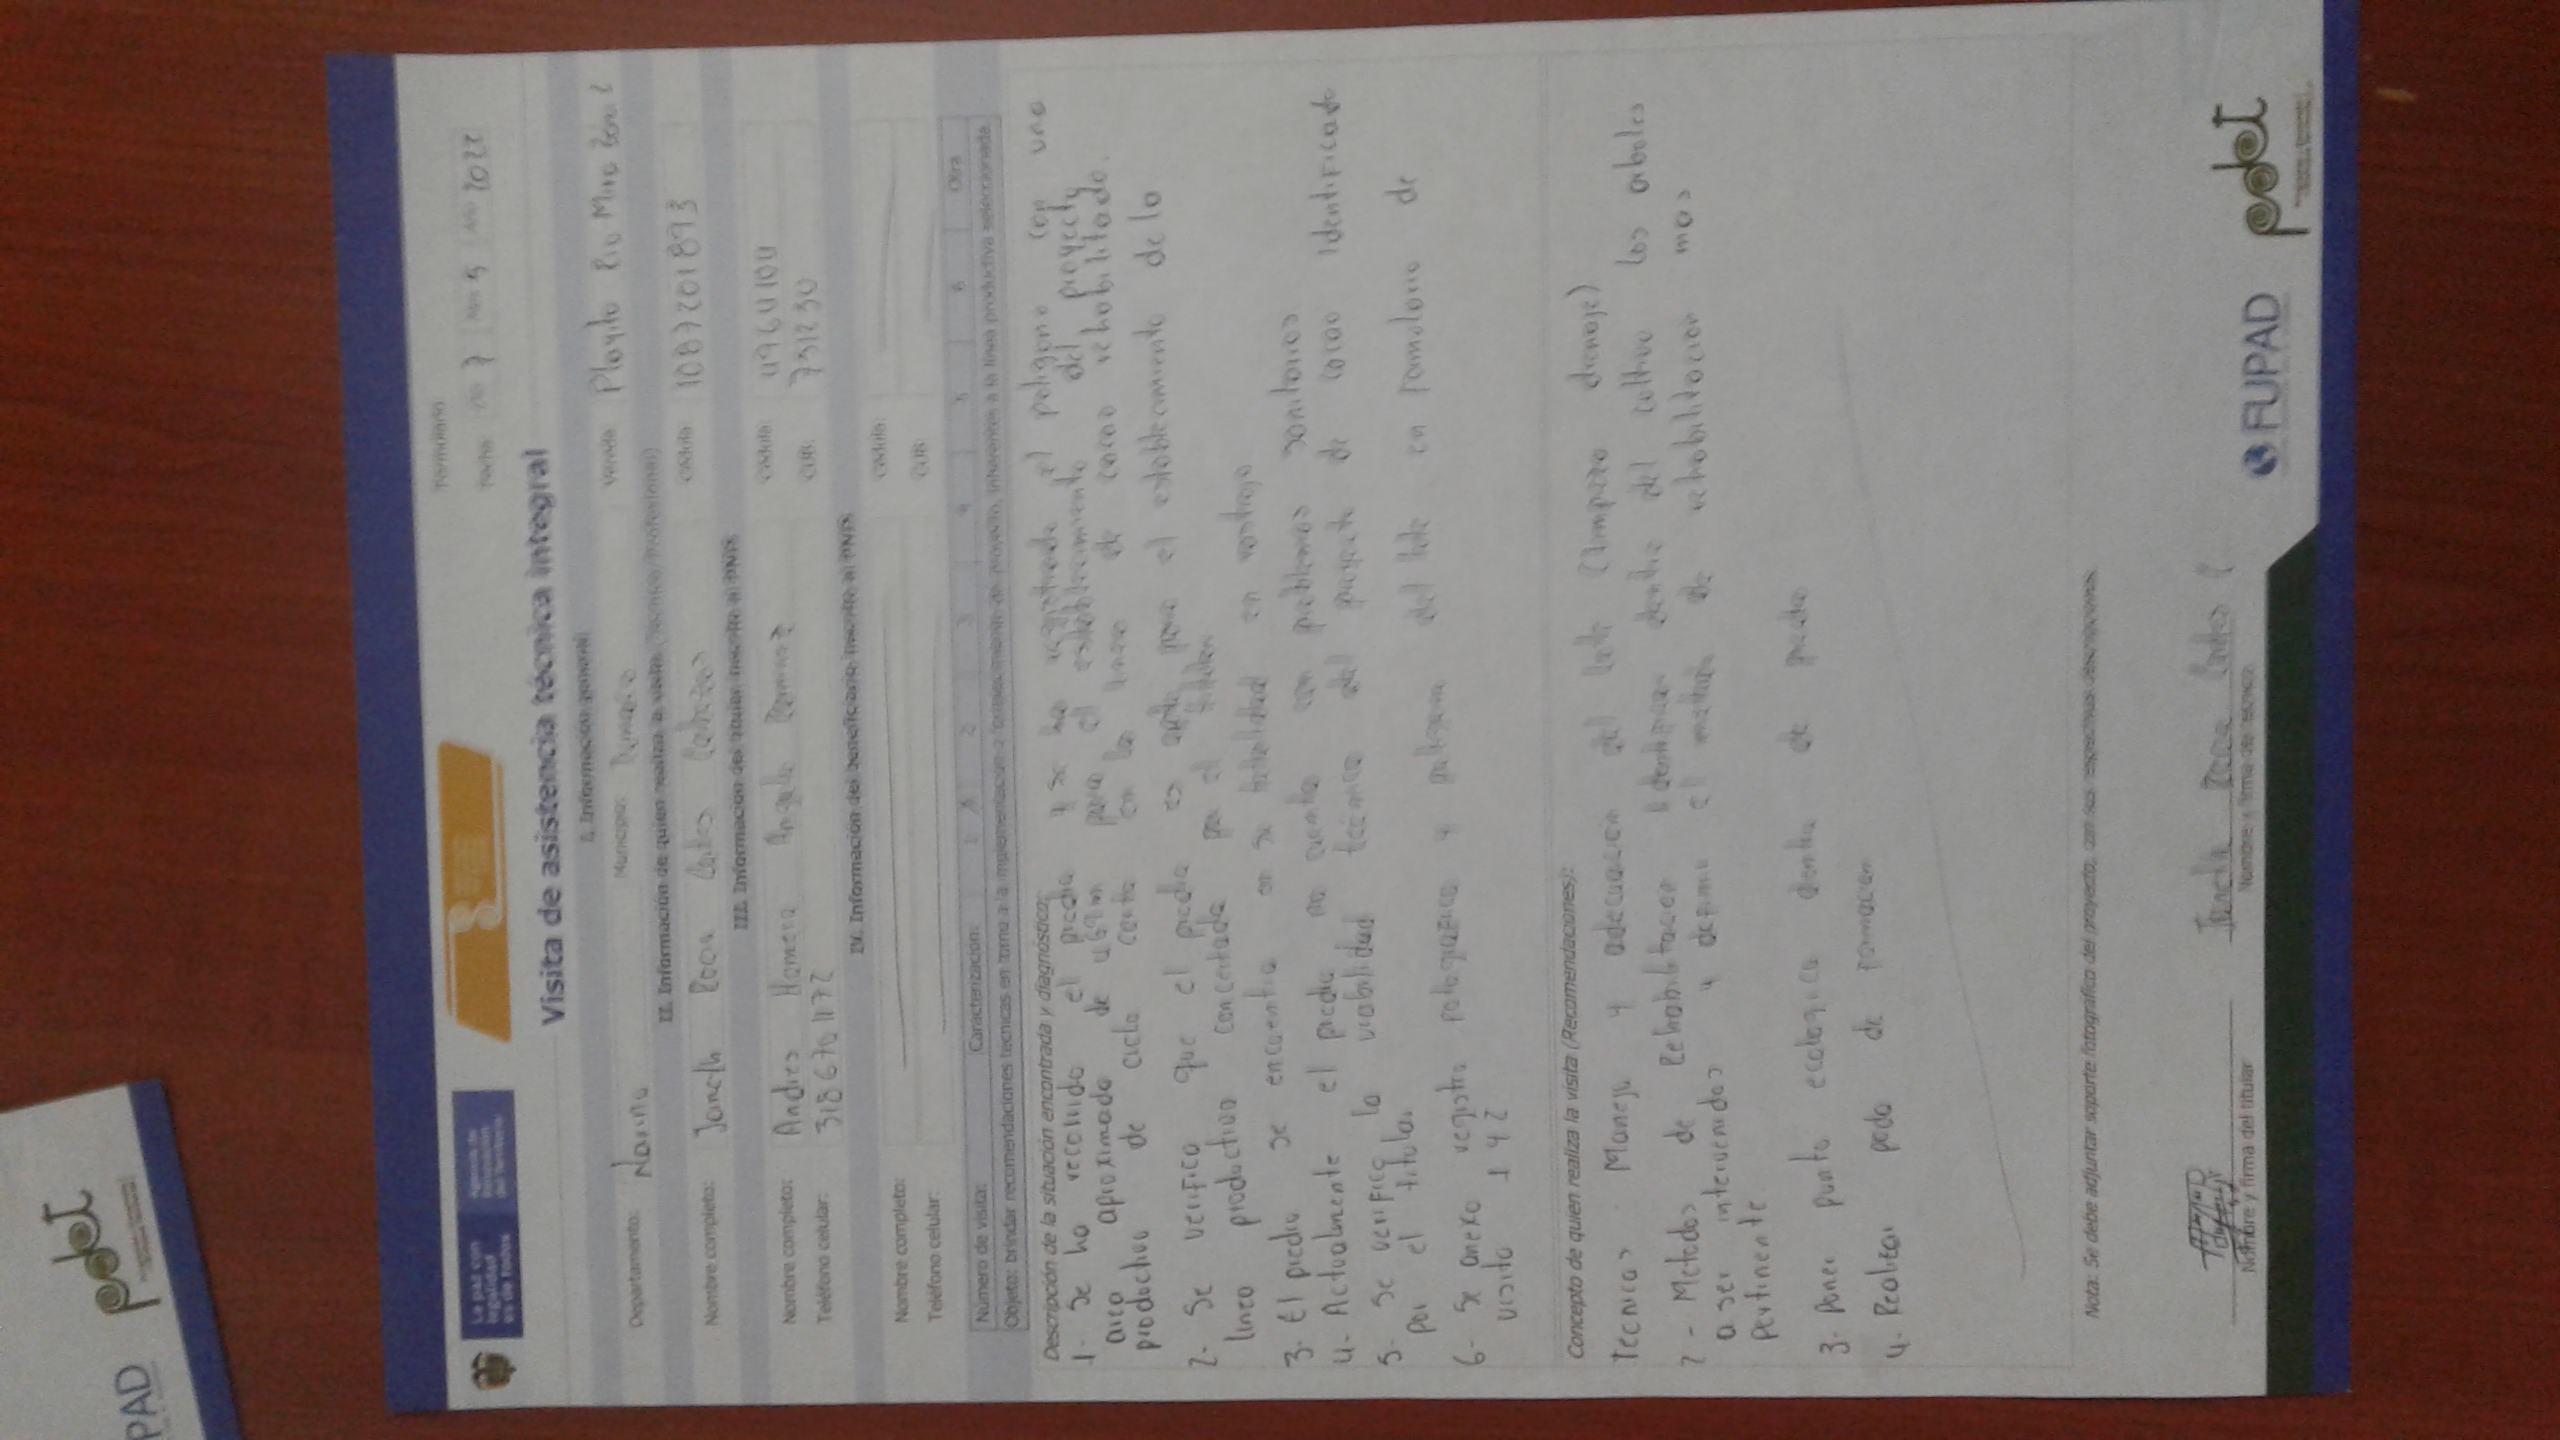 PAD
pdet
La paz con
legalidad
es de todos
Agencia de
Renovación
del Territorio
Formulario
Fecha Día 7 Mes 5 Año 2022
Visita de asistencia técnica integral
I. Información general
Departamento: Nariño Municipio: Tumaco Vereda Playita Rio Mira
II. Información de quien realiza la visita (Técnico/Profesional)
Nombre completo: Cortes Cabezas Cédula 1087201893
III. Información del titular inscrito al PNIS
Nombre completo: Andres Homero Angulo Cédula: 4964104
Teléfono celular: 3186701172 CUB: 731230
IV. Información del beneficiario inscrito al PNIS
Nombre completo: Cédula:
Teléfono celular: CUB
Número de visita: Caracterización: 1 X 2 3 4 5 6 Otra
Objeto: brindar recomendaciones tecnicas en torno a la implementación o fortalecimiento de proyecto, inherentes a la línea productiva seleccionada
Descripción de la situación encontrada y diagnóstico:
1- Se ha recorrido el predio y se ha registrado el poligono con una
area aproximada de para el establecimiento del proyecto
productivo de ciclo corto en la linea de cacao rehabilitado.
2- Se verifico que el predio es apto para el establecimiento de la
linea productiva concertada por el titular
3- El predio se encuentra en su totalidad en rastrojo
4- Actualmente el predio no cuenta con problemas sanitarios
5- Se verifico la viabilidad tecnica del proyecto de cacao identificado
por el titular
6- Se anexo registro fotografico y poligono del lote en formulario de
visita 1 y 2
Concepto de quien realiza la visita (Recomendaciones):
Tecnicas Manejo y adecuacion del lote (limpieza drenaje)
2- Metodos de Rehabilitacion identificar dentro del cultivo los arboles
a ser intervenidos y definir el metodo de rehabilitacion mas
pertinente
3- Poner punto ecologico dentro de predio
4- Realizar poda de formacion
Nota: Se debe adjuntar soporte fotográfico del proyecto, con sus respectivas descripciones.
Cortes
Nombre y firma del titular Nombre y firma del técnico
FUPAD pdet